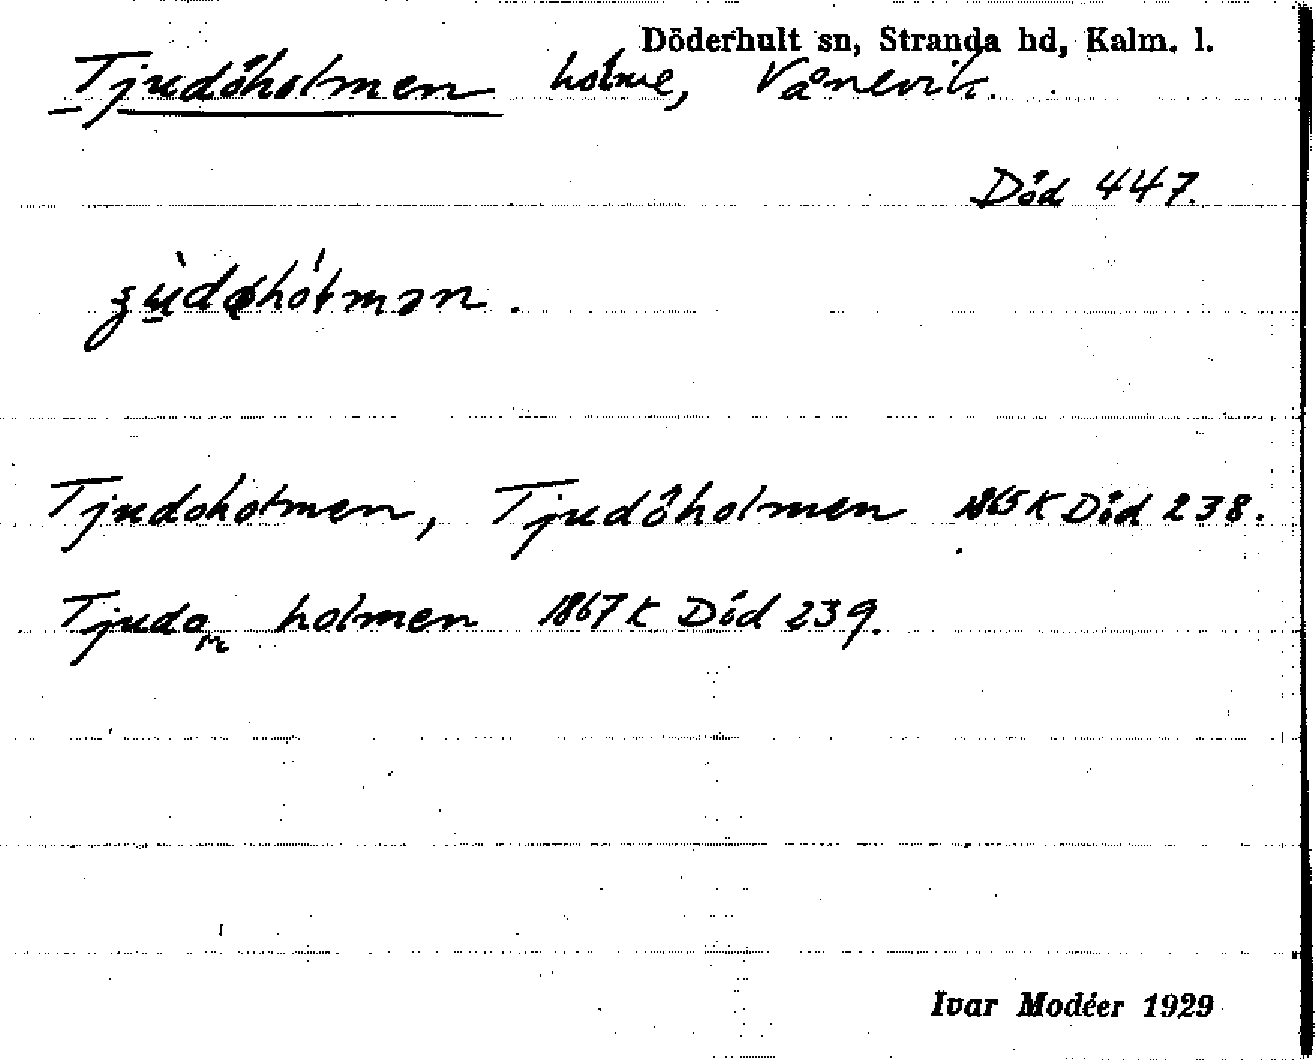 Döderhult sn, Stranda hd, Kalm. l.
Tjudöholmen holme, Vånevik.
Död 447.
Tjudoholmen, Tjudöholmen 1865 K Död 238.
Tjudon holmen 1867 K Död 239.
Ivar Modéer 1929